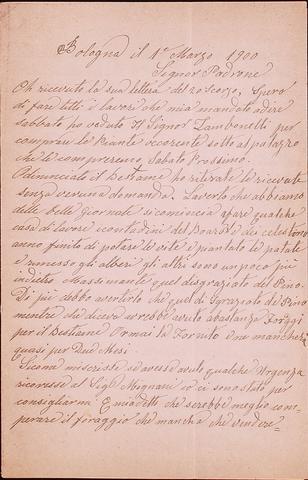 Bologna il 1° Marzo 1900
Signor Padrone
Oh ricevuto la sua lettera del 20 scorzo, Spero
di fare tutti i lavori che mia mandato adire
Sabbato po veduto Il Signor Zambonelli per
comprare le Piante ocorente sotto al palazzo
che li compreremo, Sabato Prossimo.
O dinunciato il bestiame ho ritirate le ricevute
senza veruna domanda. Laverto che abbiamo
delle belle giornate si comincia afare qualche
casa di lavori i contadini del
anno finito di potare le vite e piantato le patate
e rimesso gli alberi gli altri sono un poco più
indietro Massimante quel disgraziato del Pino.
Di più debbo avertirlo che quel di Sgraziato de Pino
mentre che diceva avrebbe avuto abastanza Foraggi
per il Bestiame Ormai la Fornito e ne mancherà
quasi per Due Mesi.
Siccome mi scriste si avesse avuto qualche Urgenza
ricoresse al Sig. Mignani io ci sono stato per
consigliarmi E mia detto, che serebbe meglio com-
perare il foraggio che mancha che vendere